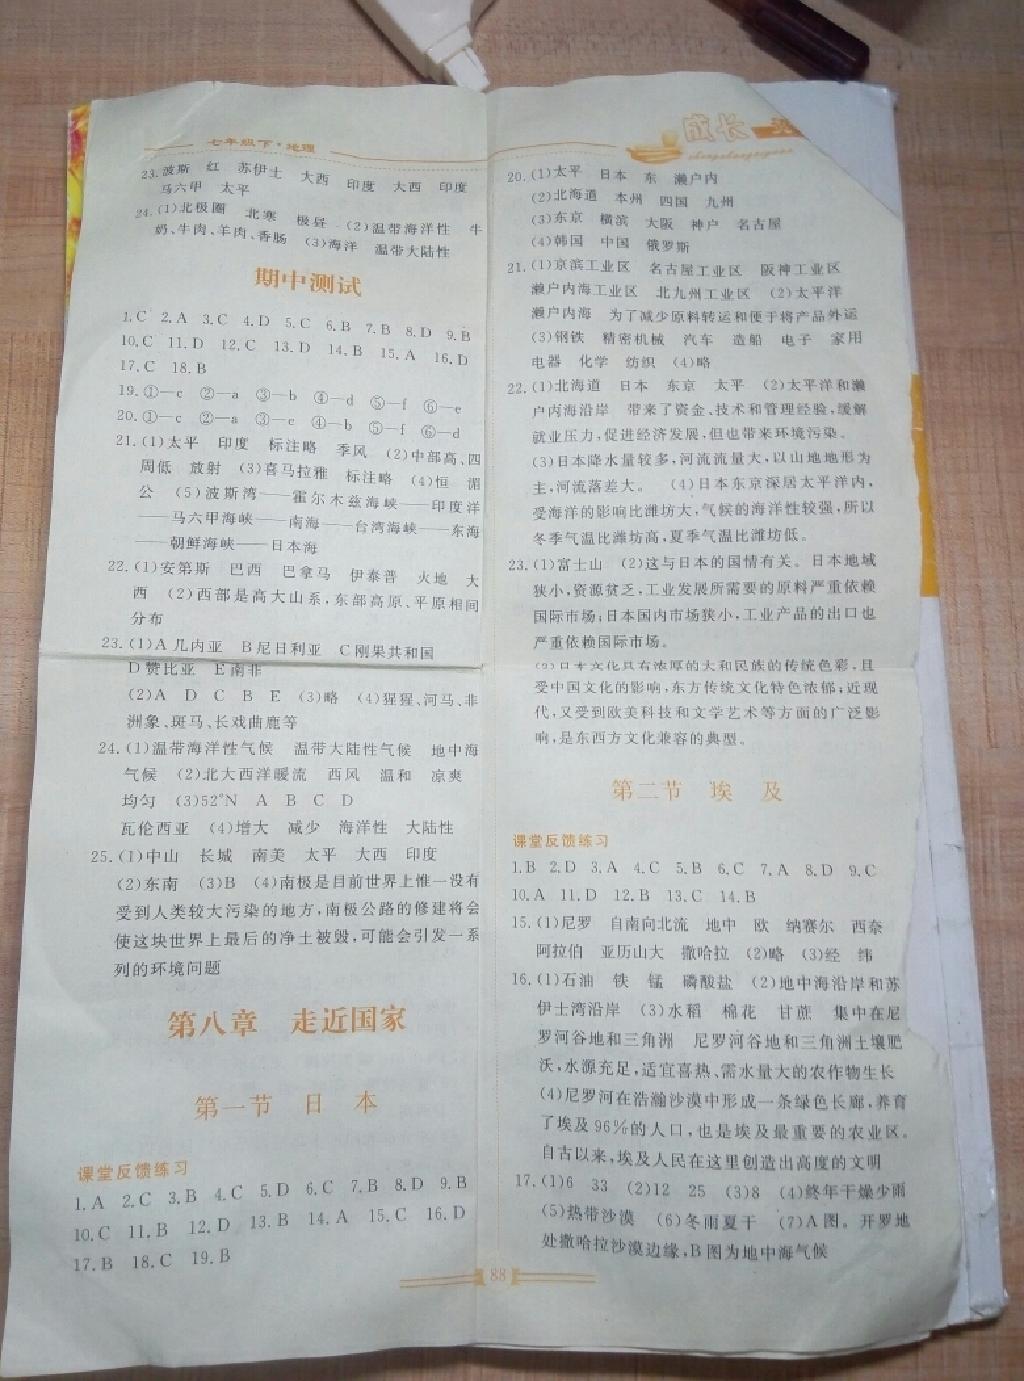 七年级下·地理
23.波斯 红 苏伊士 大西 印度 大西 印度
马六甲 太平
24.(1)北极圈 北寒 极昼 (2)温带海洋性 牛
奶、牛肉、羊肉、香肠 (3)海洋 温带大陆性
期中测试
1.C 2.A 3.C 4.D 5.C 6.B 7.B 8.D 9.B
10.C 11.D 12.C 13.D 14.B 15.A 16.D
17.C 18.B
19.①—c ②—a ③—b ④—d ⑤—f ⑥—e
20.①—c ②—a ③—e ④—b ⑤—f ⑥—d
21.(1)太平 印度 标注略 季风 (2)中部高、四
周低 放射 (3)喜马拉雅 标注略 (4)恒 湄
公 (5)波斯湾——霍尔木兹海峡——印度洋
——马六甲海峡——南海——台湾海峡——东海
——朝鲜海峡——日本海
22.(1)安第斯 巴西 巴拿马 伊泰普 火地 大
西 (2)西部是高大山系,东部高原、平原相间
分布
23.(1)A几内亚 B尼日利亚 C刚果共和国
D赞比亚 E南非
(2)A D C B E (3)略 (4)猩猩、河马、非
洲象、斑马、长戏曲鹿等
24.(1)温带海洋性气候 温带大陆性气候 地中海
气候 (2)北大西洋暖流 西风 温和 凉爽
均匀 (3)52°N A B C D
瓦伦西亚 (4)增大 减少 海洋性 大陆性
25.(1)中山 长城 南美 太平 大西 印度
(2)东南 (3)B (4)南极是目前世界上惟一没有
受到人类较大污染的地方,南极公路的修建将会
使这块世界上最后的净土被毁,可能会引发一系
列的环境问题
第八章 走近国家
第一节 日 本
课堂反馈练习
1.A 2.C 3.B 4.C 5.D 6.C 7.B 8.D 9.B
10.C 11.B 12.D 13.B 14.A 15.C 16.D
17.B 18.C 19.B
成长
20.(1)太平 日本 东 濑户内
(2)北海道 本州 四国 九州
(3)东京 横滨 大阪 神户 名古屋
(4)韩国 中国 俄罗斯
21.(1)京滨工业区 名古屋工业区 阪神工业区
濑户内海工业区 北九州工业区 (2)太平洋
濑户内海 为了减少原料转运和便于将产品外运
(3)钢铁 精密机械 汽车 造船 电子 家用
电器 化学 纺织 (4)略
22.(1)北海道 日本 东京 太平 (2)太平洋和濑
户内海沿岸 带来了资金、技术和管理经验,缓解
就业压力,促进经济发展,但也带来环境污染。
(3)日本降水量较多,河流流量大,以山地地形为
主,河流落差大。 (4)日本东京深居太平洋内,
受海洋的影响比潍坊大,气候的海洋性较强,所以
冬季气温比潍坊高,夏季气温比潍坊低。
23.(1)富士山 (2)这与日本的国情有关。日本地域
狭小,资源贫乏,工业发展所需要的原料严重依赖
国际市场;日本国内市场狭小,工业产品的出口也
严重依赖国际市场。
(3)日本文化具有浓厚的大和民族的传统色彩,且
受中国文化的影响,东方传统文化特色浓郁;近现
代,又受到欧美科技和文学艺术等方面的广泛影
响,是东西方文化兼容的典型。
第二节 埃 及
课堂反馈练习
1.B 2.D 3.A 4.C 5.B 6.C 7.A 8.D 9.C
10.A 11.D 12.B 13.C 14.B
15.(1)尼罗 自南向北流 地中 欧 纳赛尔 西奈
阿拉伯 亚历山大 撒哈拉 (2)略 (3)经 纬
16.(1)石油 铁 锰 磷酸盐 (2)地中海沿岸和苏
伊士湾沿岸 (3)水稻 棉花 甘蔗 集中在尼
罗河谷地和三角洲 尼罗河谷地和三角洲土壤肥
沃,水源充足,适宜喜热、需水量大的农作物生长
(4)尼罗河在浩瀚沙漠中形成一条绿色长廊,养育
了埃及96%的人口,也是埃及最重要的农业区。
自古以来,埃及人民在这里创造出高度的文明
17.(1)6 33 (2)12 25 (3)8 (4)终年干燥少雨
(5)热带沙漠 (6)冬雨夏干 (7)A图。开罗地
处撒哈拉沙漠边缘,B图为地中海气候
88